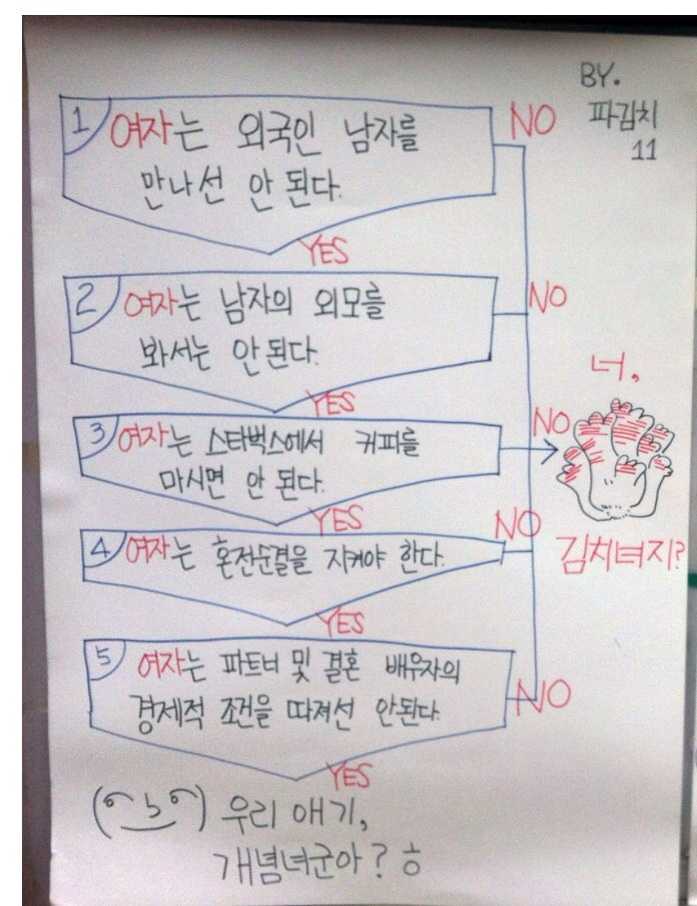 BY.
파김치
11
1 여자는 외국인 남자를
만나선 안 된다.
NO
YES
2 여자는 남자의 외모를
봐서는 안된다.
NO
YES
3 여자는 스타벅스에서 커피를
마시면 안 된다.
NO
YES
너,
김치녀지?
4 여자는 혼전순결을 지켜야 한다.
NO
YES
5 여자는 파트너 및 결혼 배우자의
경제적 조건을 따져선 안된다.
NO
YES
( ͡° ͜ʖ ͡°) 우리 애기,
개념녀군아? ㅎ